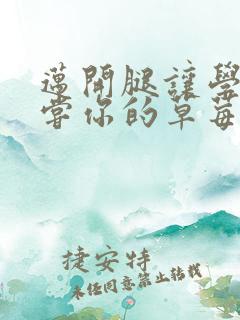 邁開腿讓學
嘗你的草莓
捷安特
未经同意禁止转载